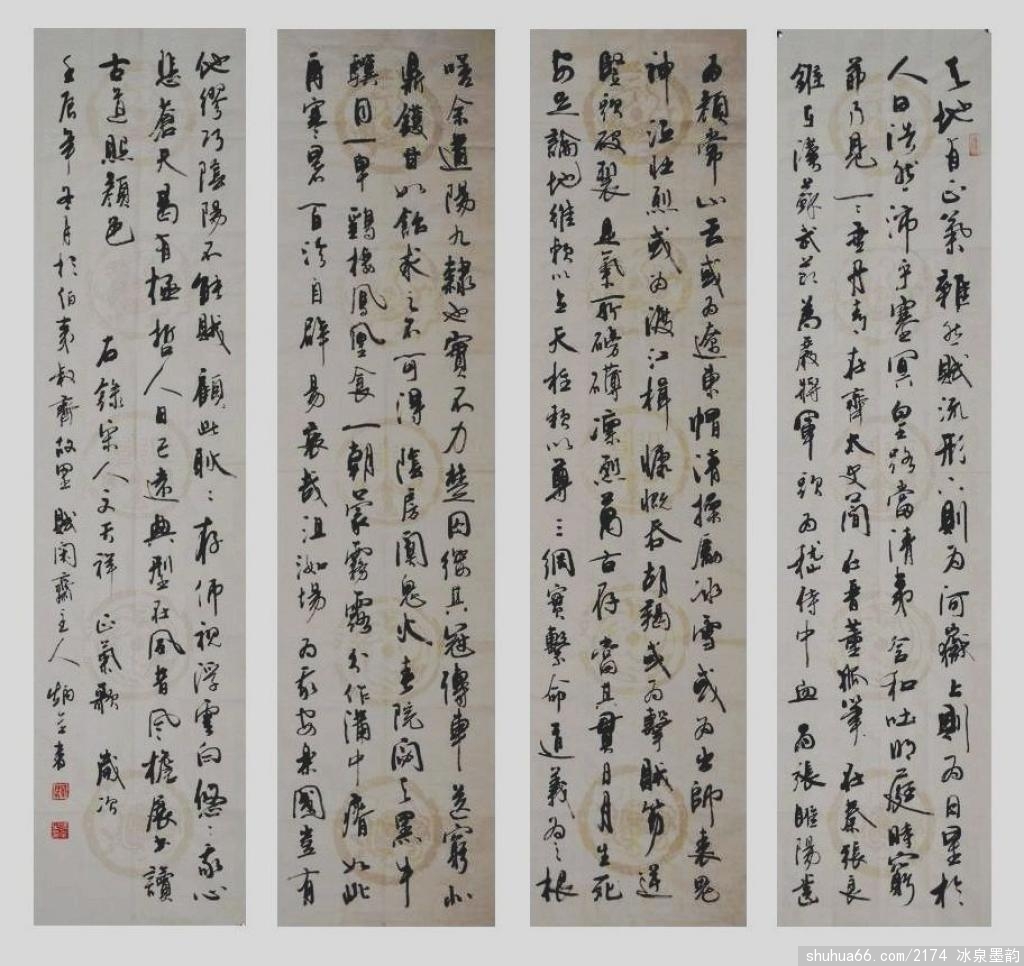 天地有正氣雜然賦流形下則為河嶽上則為日星於
人曰浩然沛乎塞冥皇路當清夷含和吐明庭時窮
節乃見一一垂丹青在齊太史簡在晉董狐筆在秦張良
錐在漢蘇武節為嚴將軍頭為嵇侍中血為張睢陽齒
為顏常山舌或為遼東帽清操厲冰雪或為出師表鬼
神泣壯烈或為渡江楫慷慨吞胡羯或為擊賊笏逆
豎頭破裂是氣所磅礴凜烈萬古存當其貫日月生死
安足論地維賴以立天柱賴以尊三綱實繫命道義為之根
嗟余遘陽九隸也實不力楚囚纓其冠傳車送窮北
鼎鑊甘如飴求之不可得陰房闃鬼火春院閟天黑牛
驥同一皁鷄棲鳳凰食一朝蒙霧露分作溝中瘠如此
再寒暑百沴自辟易哀哉沮洳場為我安樂國豈有
他繆巧陰陽不能賊顧此耿耿存仰視浮雲白悠悠我心
悲蒼天曷有極哲人日已遠典型在夙昔風檐展書讀
古道照顏色 右錄宋人文天祥 正氣歌 歲次
壬辰年冬月於伯夷叔齊故里 賦閑齋主人 炳書
shuhua66.com/2174 冰泉墨韵